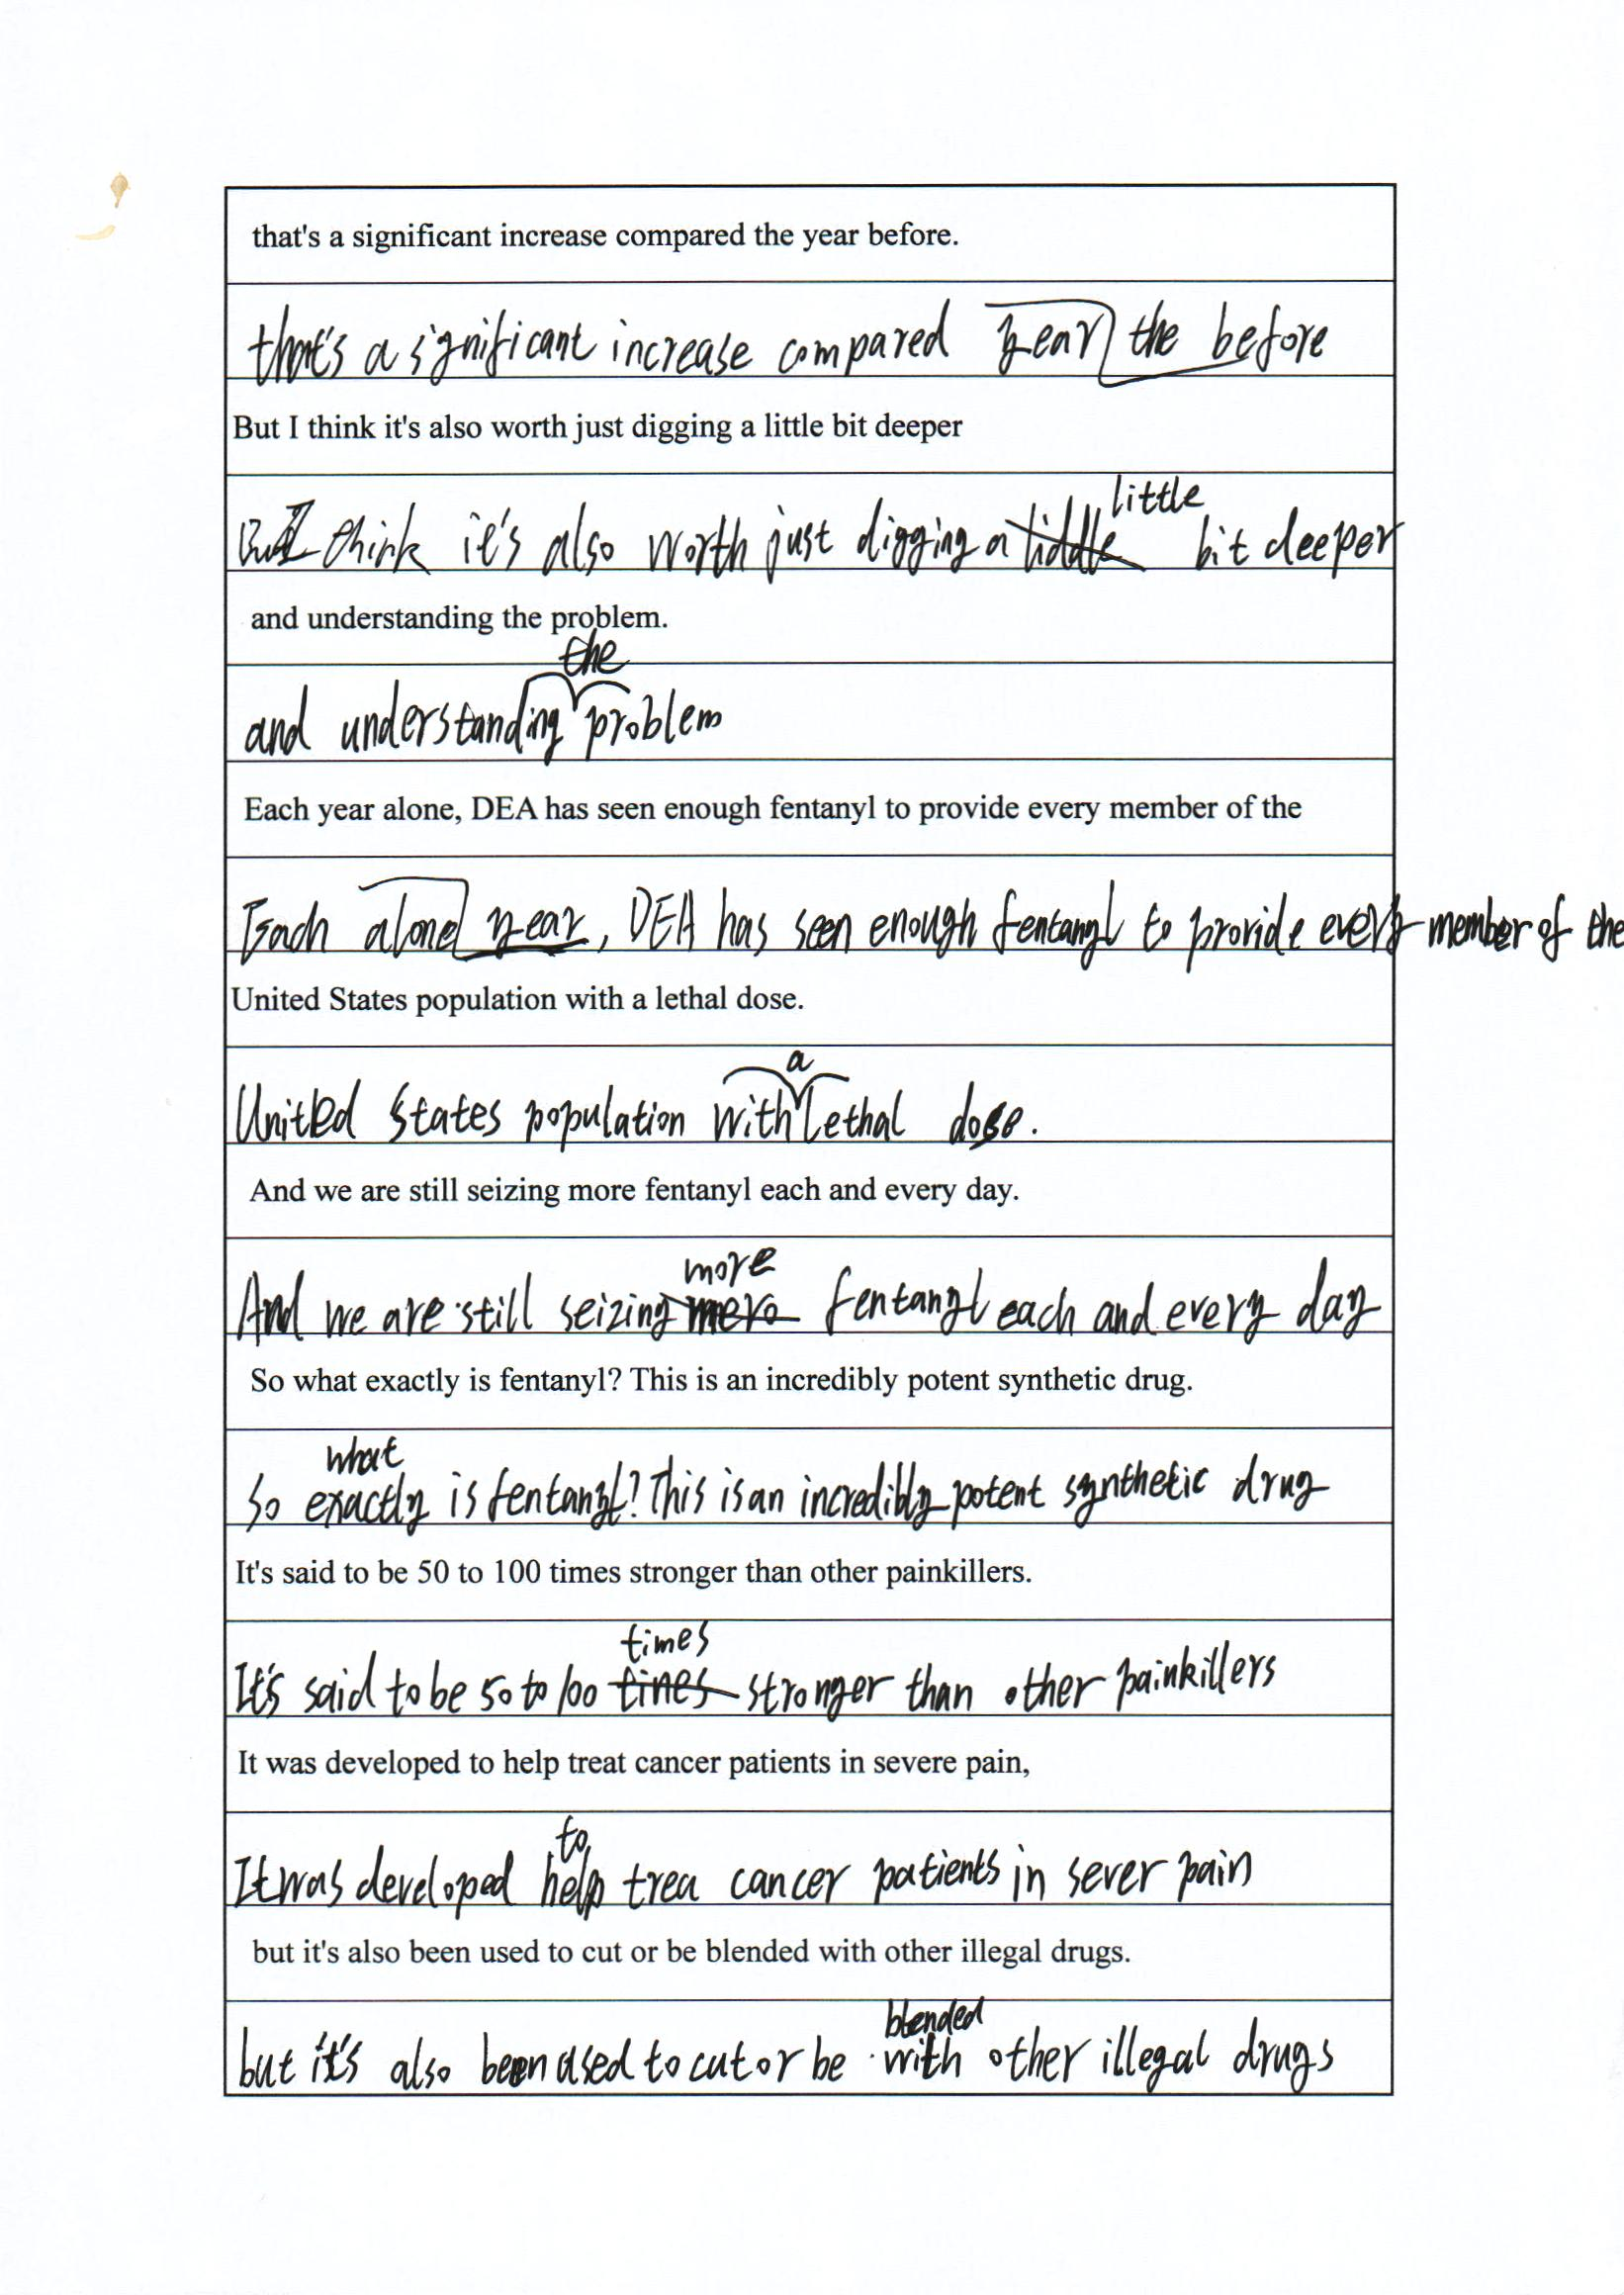 that's a significant increase compared the year before.
that's a significant increase compared the year before
But I think it's also worth just digging a little bit deeper
But I think it's also worth just digging a little bit deeper
and understanding the problem.
and understanding the problem
Each year alone, DEA has seen enough fentanyl to provide every member of the
Each year alone, DEA has seen enough fentanyl to provide every member of the
United States population with a lethal dose.
United States population with a lethal dose.
And we are still seizing more fentanyl each and every day.
And we are still seizing more fentanyl each and every day
So what exactly is fentanyl? This is an incredibly potent synthetic drug.
So what exactly is fentanyl? This is an incredibly potent synthetic drug
It's said to be 50 to 100 times stronger than other painkillers.
It's said to be 50 to 100 times stronger than other painkillers
It was developed to help treat cancer patients in severe pain,
It was developed to help trea cancer patients in sever pain
but it's also been used to cut or be blended with other illegal drugs.
but it's also been used to cut or be blended with other illegal drugs